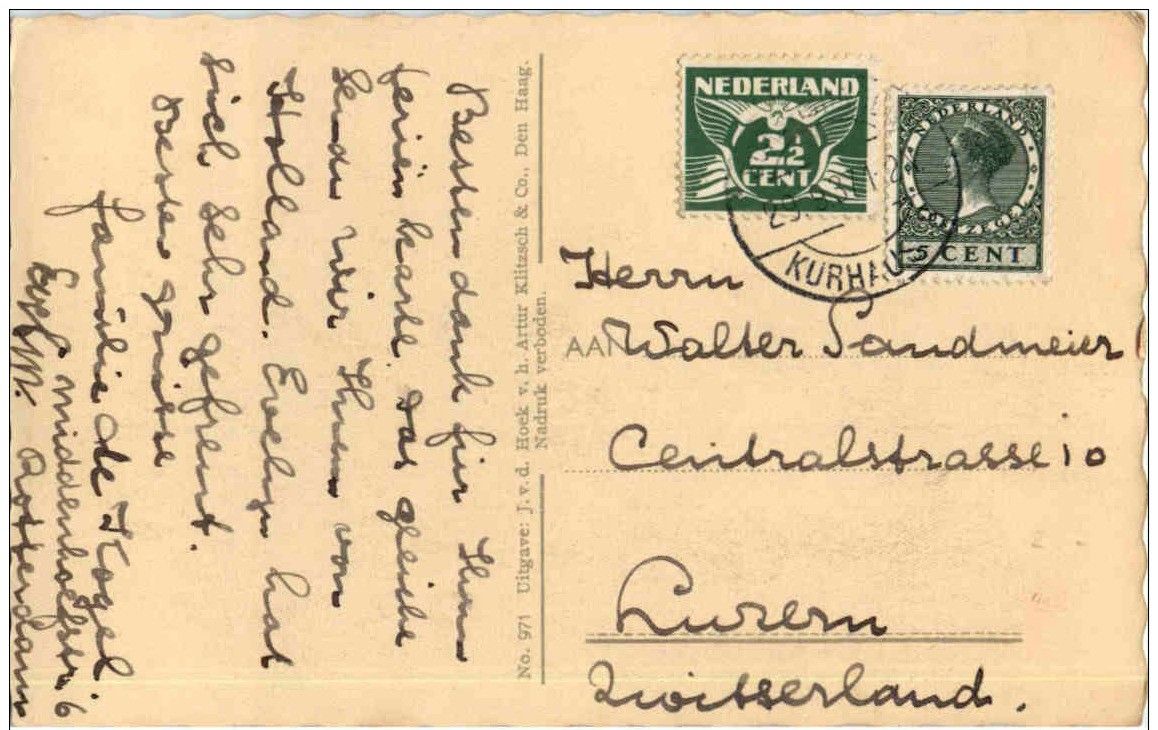 Besten dank für Ihre
ferien karte. Das gleiche
sende wir Ihnen von
Holland. Evelyn hat
sich sehr gefreut.
Beste grüsse
familie de Kogel.
middenhoefstr. 6
Rotterdam
No. 971 Uitgave: J. v. d. Hoek v. h. Artur Klitzsch & Co., Den Haag.
Nadruk verboden.
NEDERLAND
2½
CENT
NEDERLAND
POSTZEGEL
5 CENT
KURHAUS
Herrn
AAN Walter Sandmeier
Centralstrasse 10
Luzern
Zwitserland.